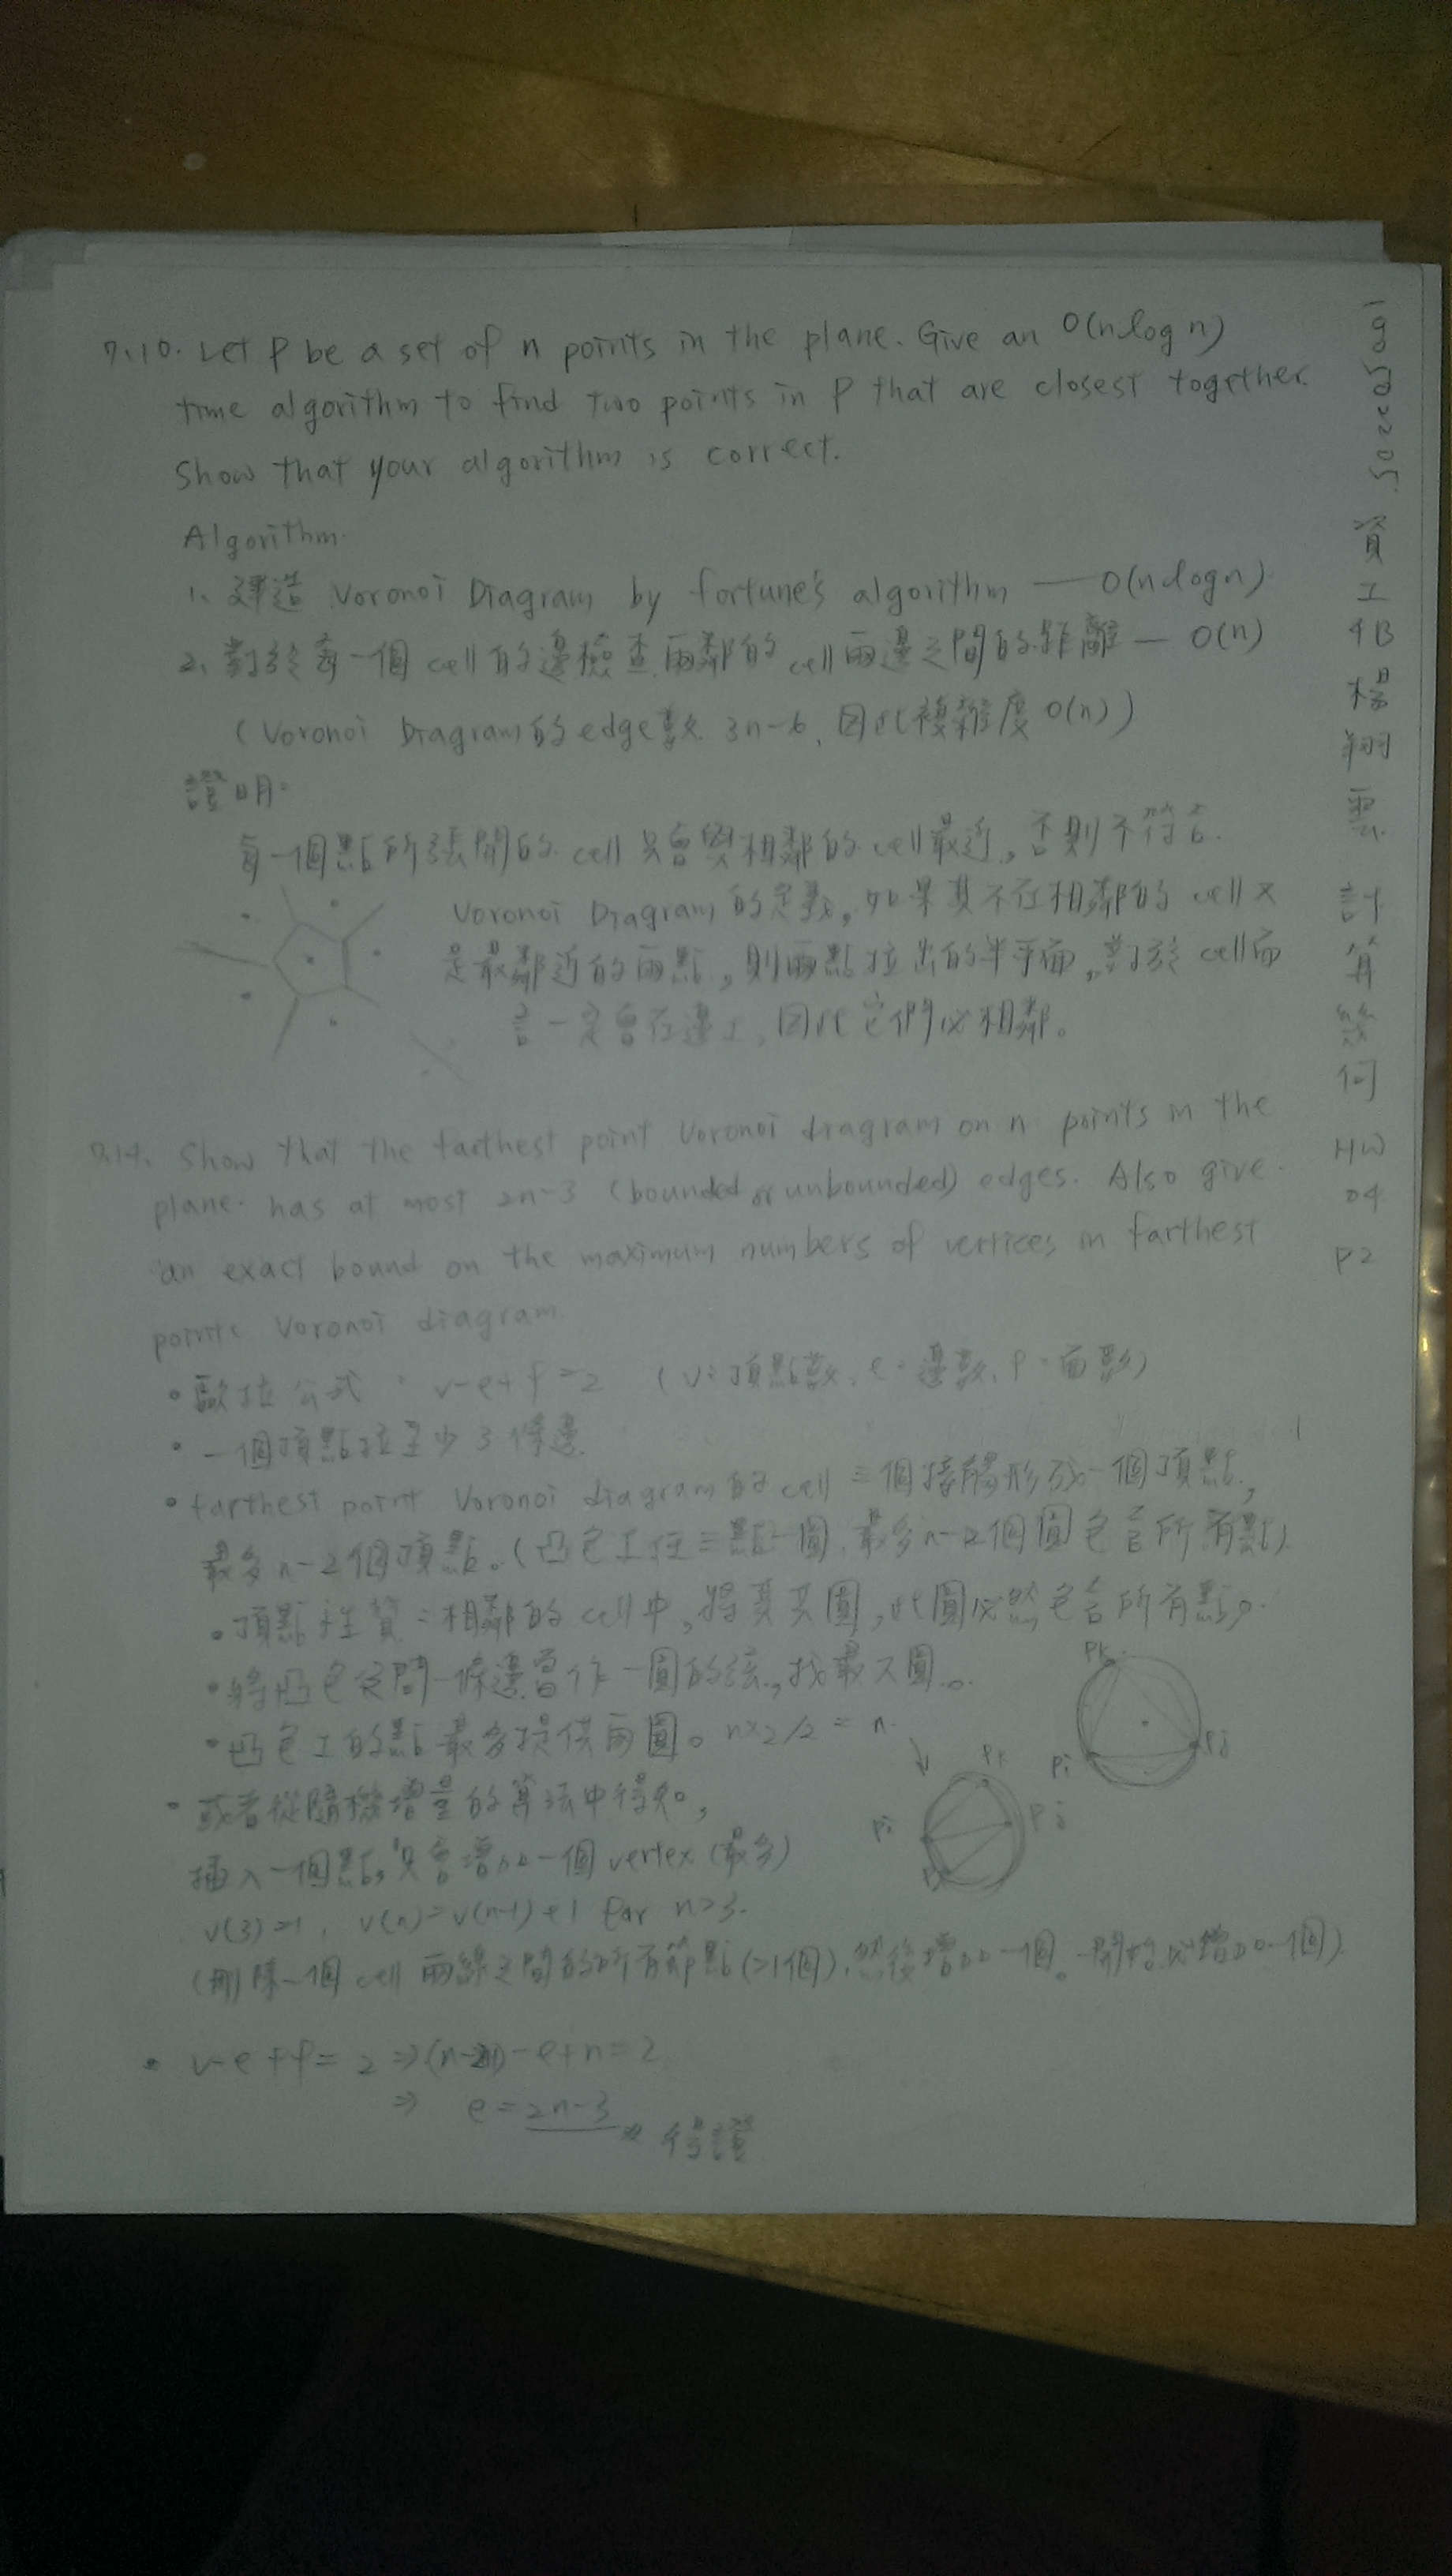 7.10. Let P be a set of n points in the plane. Give an O(n log n)
time algorithm to find two points in P that are closest together.
Show that your algorithm is correct.
Algorithm.
1、建造 Voronoi Diagram by fortune's algorithm — O(n log n)
2、對於每一個 cell 的邊檢查兩鄰的 cell 兩邊之間的距離 — O(n)
(Voronoi Diagram 的 edge 數 3n-6, 因此複雜度 O(n))
證明:
每一個點所張開的 cell 只會與相鄰的 cell 最近,否則不符合
Voronoi Diagram 的定義,如果其不在相鄰的 cell 又
是最鄰近的兩點,則兩點拉出的半平面,對於 cell 而
言一定會在邊上,因此它們必相鄰。
7.14. Show that the farthest point Voronoi diagram on n points in the
plane has at most 2n-3 (bounded or unbounded) edges. Also give
an exact bound on the maximum numbers of vertices in farthest
points Voronoi diagram.
• 歐拉公式: v-e+f=2 (v:頂點數, e:邊數, f:面數)
• 一個頂點拉至少 3 條邊
• farthest point Voronoi diagram 的 cell 三個接觸形成一個頂點,
最多 n-2 個頂點。(凸包上任三點一圓,最多 n-2 個圓包含所有點)
• 頂點性質:相鄰的 cell 中,將其共圓,此圓必然包含所有點。
• 將凸包 間一條邊當作一圓的弦,找最大圓。
• 凸包上的點最多提供兩圓。n×2/2 = n
• 或者從隨機增量的算法中得知,
插入一個點,只會增加一個 vertex (最多)
v(3)=1, v(n)=v(n-1)+1 for n>3.
(刪除一個 cell 兩線之間的所有節點(≥1個),然後增加一個。一開始 增加一個)
• v-e+f=2 ⇒ -e+n=2
⇒ e=2n-3 得證
Pk
Pi
Pj
Pk
Pi
Pj
資工4B 楊翔雲 計算幾何 HW 04 P2